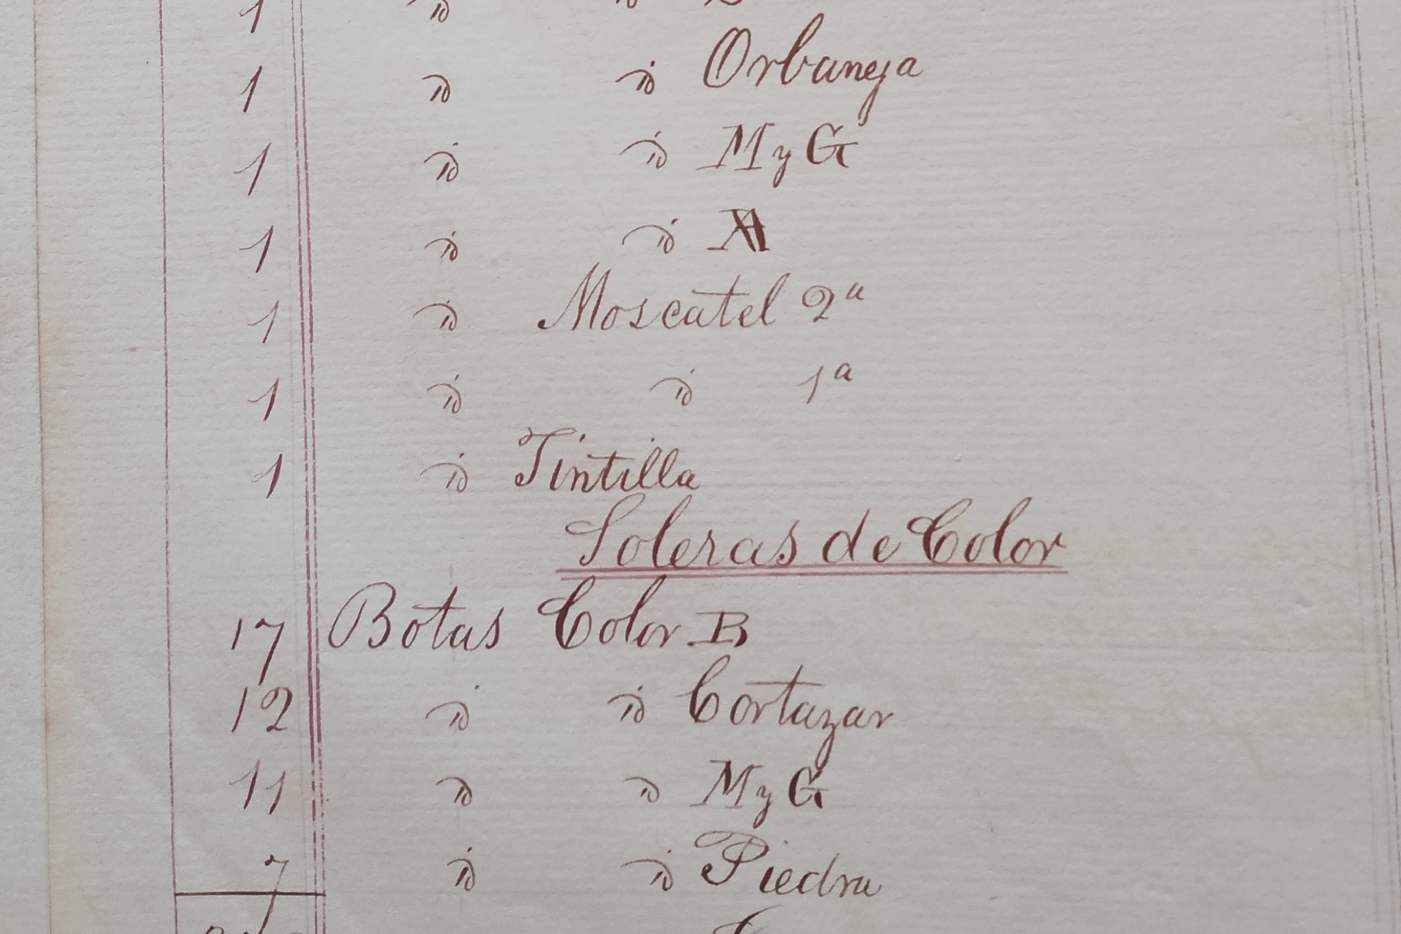 1 id
1 id id Orbaneja
1 id id M y G
1 id id
1 id Moscatel 2ª
1 id id 1ª
1 id Tintilla
Soleras de Color
17 Botas Color B
12 id id Cortazar
11 id id M y G
7 id id Piedra